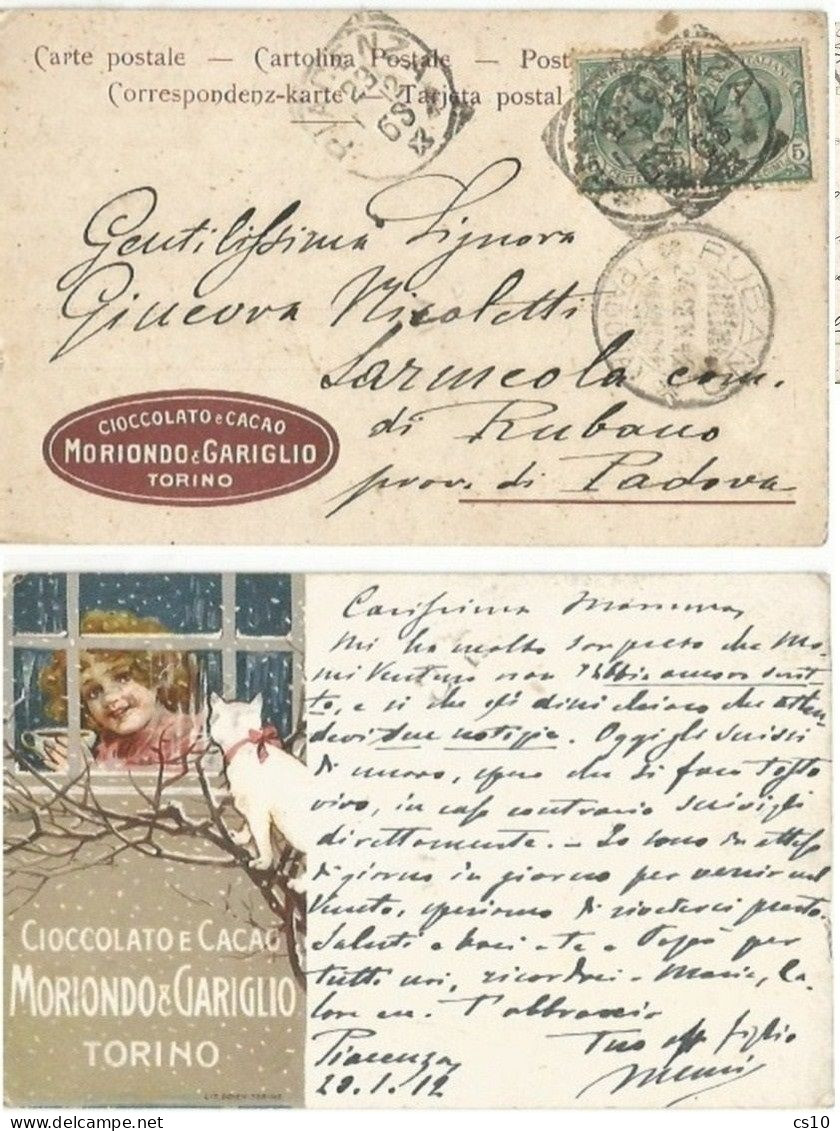 Carte postale — Cartolina Postale — Post
Correspondenz-karte — Tarjeta postal
PIACENZA
5
RUBANO
Gentilissima Signora
Ginevra Nicoletti
Sarmeola com.
di Rubano
prov. di Padova
CIOCCOLATO e CACAO
MORIONDO & GARIGLIO
TORINO
Carissima Mamma,
Mi ha molto sorpreso che Mo-
mi Venturo non abbia ancora scrit-
to, e sì che gli dichiaravo che atten-
devi sue notizie. Oggi gli scrissi
di nuovo, spero che si farà tosto
vivo, in caso contrario scrivigli
direttamente. — Io sono in attesa
di giorno in giorno per venir nel
Veneto, speriamo di rivederci presto.
Saluti e baci a te e Papà per
tutti voi, ricordi Maria,
T'abbraccio
Tuo aff. figlio
Piacenza
20.1.12
CIOCCOLATO E CACAO
MORIONDO & GARIGLIO
TORINO
LIT. DOYEN - TORINO
cs10